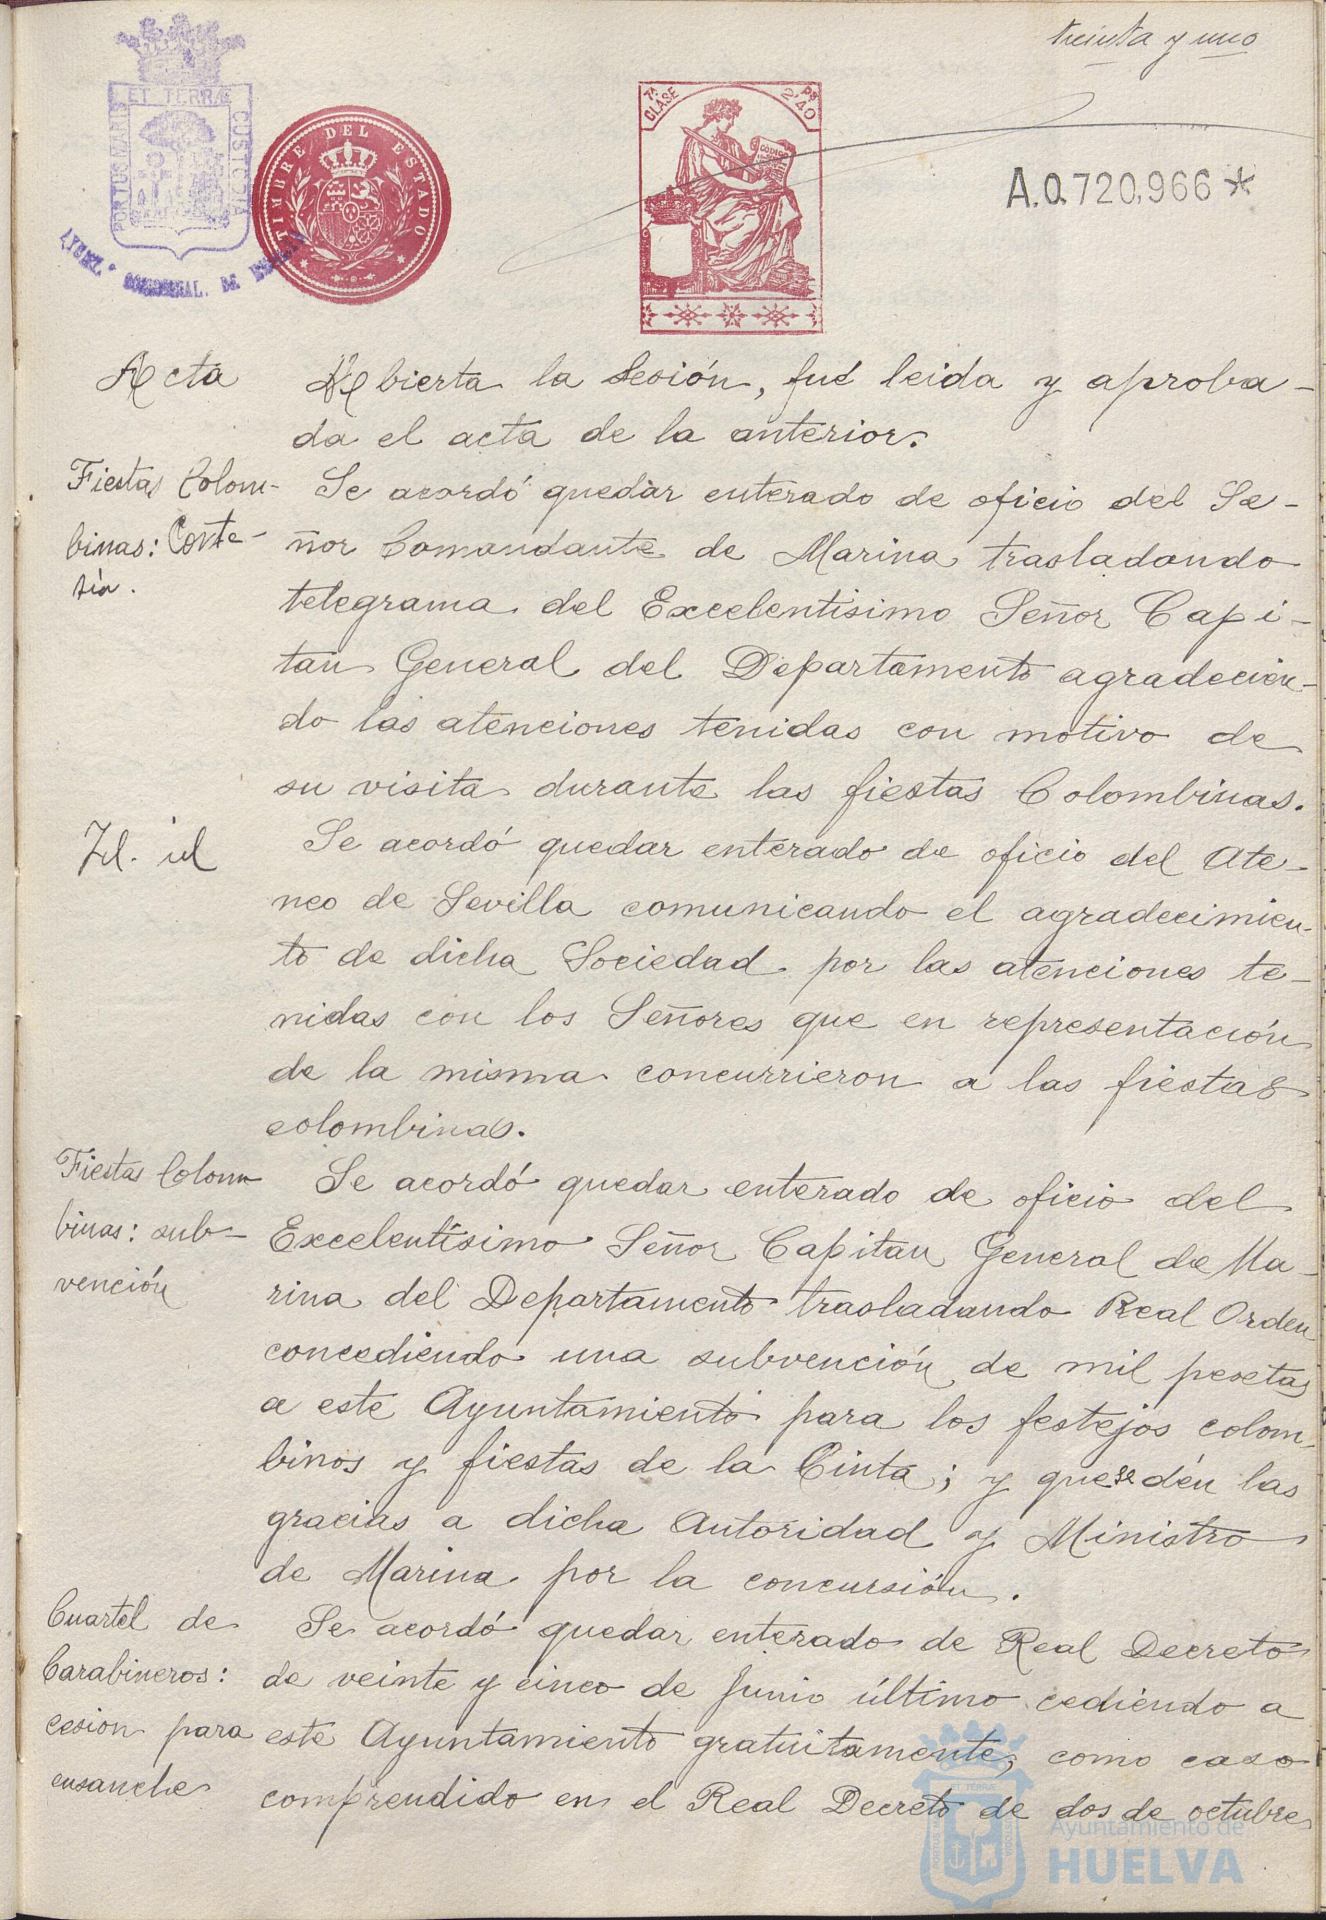 treinta y uno
ET TERRÆ
PORTUS MARIS
CUSTODIA
TIMBRE DEL ESTADO
7ª CLASE
2'40
CÓDIGO
A.0.720,966 *
Acta
Abierta la Sesión, fué leida y aproba-
da el acta de la anterior.
Fiestas Colom-
binas: Corte-
sía.
Se acordó quedar enterado de oficio del Se-
ñor Comandante de Marina trasladando
telegrama del Excelentisimo Señor Capi-
tan General del Departamento agradecien-
do las atenciones tenidas con motivo de
su visita durante las fiestas Colombinas.
Id. id
Se acordó quedar enterado de oficio del Ate-
neo de Sevilla comunicando el agradecimien-
to de dicha Sociedad por las atenciones te-
nidas con los Señores que en representación
de la misma concurrieron a las fiestas
colombinas.
Fiestas Colom
binas: sub-
vención
Se acordó quedar enterado de oficio del
Excelentísimo Señor Capitan General de Ma-
rina del Departamento trasladando Real Orden
concediendo una subvención de mil pesetas
a este Ayuntamiento para los festejos colom-
binos y fiestas de la Cinta; y que se dén las
gracias a dicha Autoridad y Ministro
de Marina por la concursión.
Cuartel de
Carabineros:
cesion para
ensanche
Se acordó quedar enterado de Real Decreto
de veinte y cinco de Junio último cediendo a
este Ayuntamiento gratuitamente, como caso
comprendido en el Real Decreto de dos de octubre
Ayuntamiento de
HUELVA